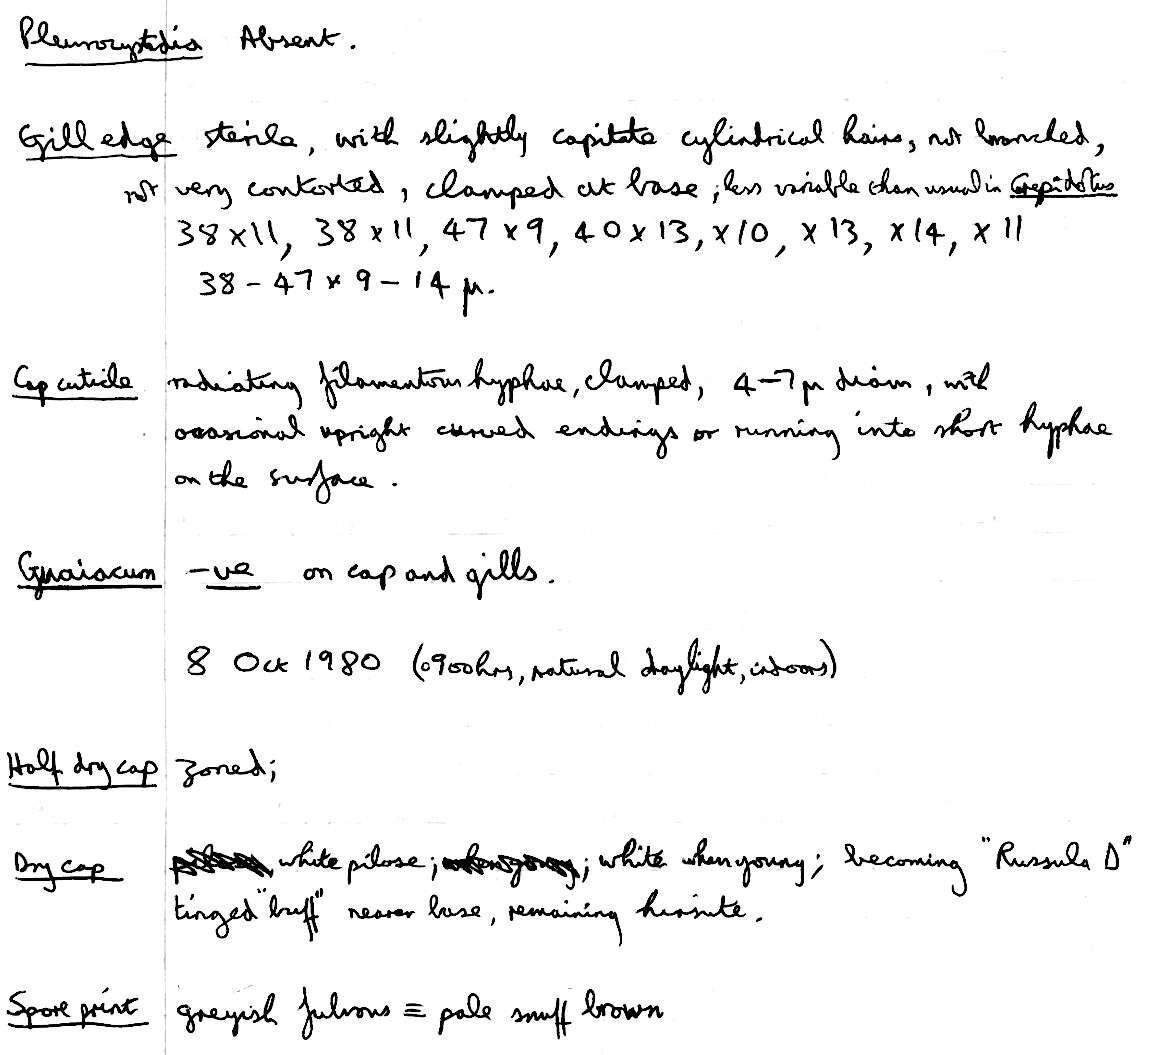 Pleurocystidia Absent.
Gill edge sterile, with slightly capitate cylindrical hairs, not branched,
not very contorted, clamped at base; less variable than usual in Crepidotus
38 x 11, 38 x 11, 47 x 9, 40 x 13, x 10, x 13, x 14, x 11
38 - 47 x 9 - 14 µ.
Cap cuticle radiating filamentous hyphae, clamped, 4-7µ diam, with
occasional upright curved endings or running into short hyphae
on the surface.
Guaiacum -ve on cap and gills.
8 Oct 1980 (0900hrs, natural daylight, indoors)
Half dry cap zoned;
Dry cap white pilose; white when young; becoming "Russula D"
tinged "buff" nearer base, remaining hirsute.
Spore print greyish fulvous ≡ pale snuff brown